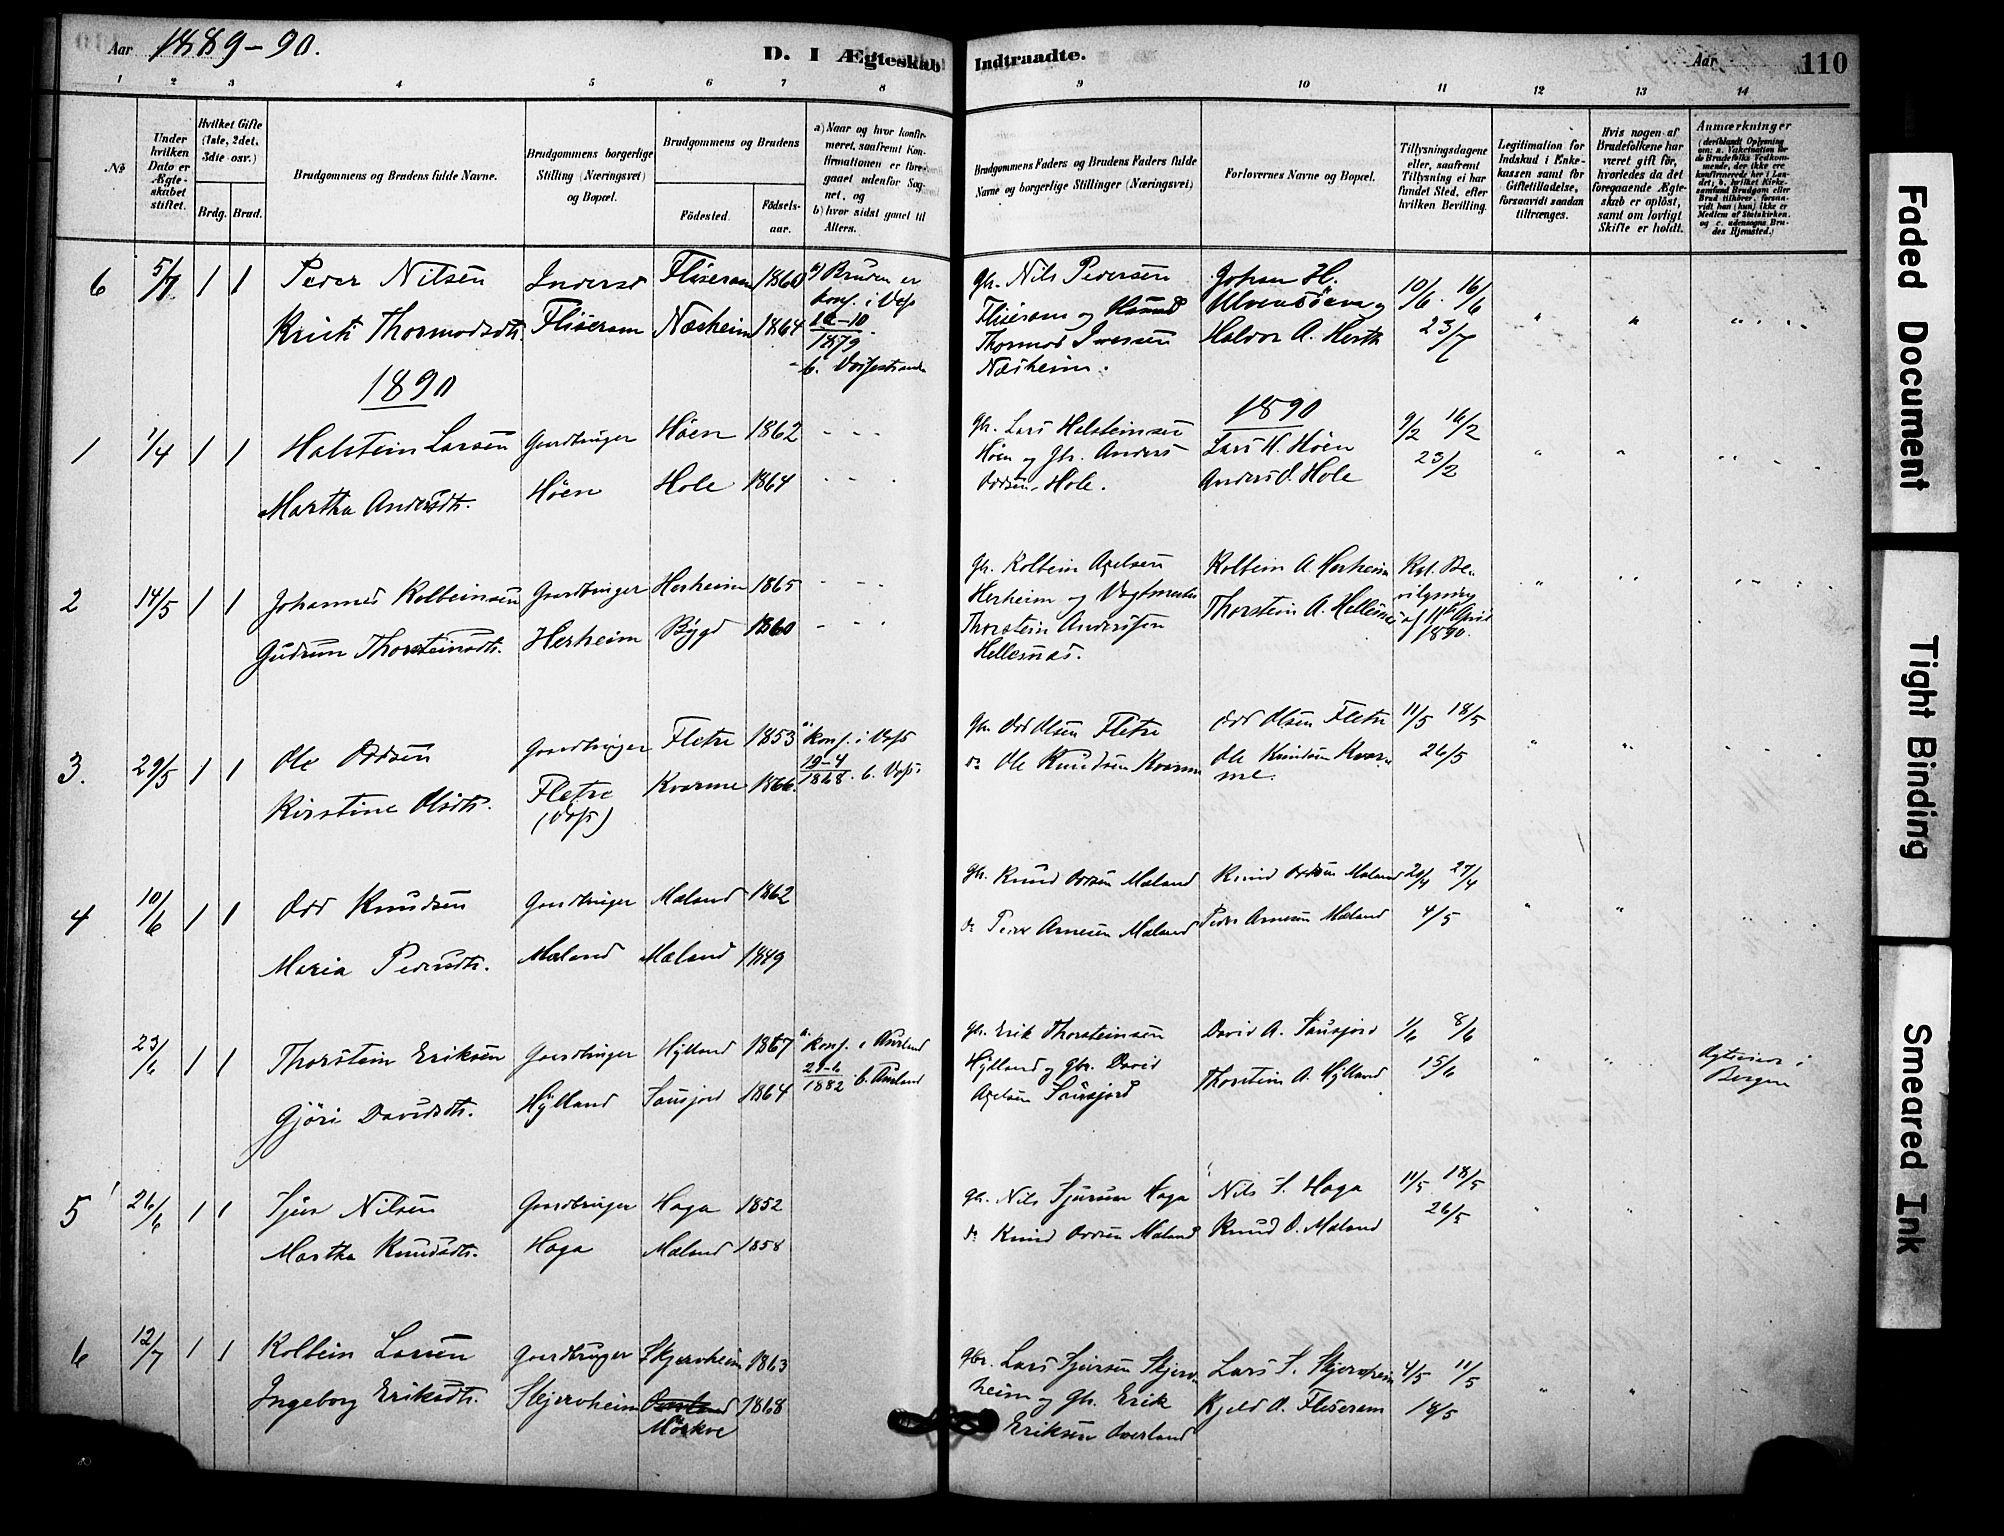 Aar 1889-90.
D. I Ægteskab Indtraadte.
Aar 110
1 2 3 4 5 6 7 8 9 10 11 12 13 14
No
Under hvilken Dato er Ægteskabet stiftet.
Hvilket Gifte (1ste, 2det, 3die osv.)
Brdg. Brud.
Brudgommens og Brudens fulde Navne.
Brudgommens borgerlige Stilling (Næringsvei) og Bopæl.
Brudgommens og Brudens
Fødested. Fødselsaar.
a) Naar og hvor konfirmeret, saafremt Konfirmationen er foregaaet udenfor Sognet, og
b) hvor sidst gaaet til Alters.
Brudgommens Faders og Brudens Faders fulde Navne og borgerlige Stillinger (Næringsvei)
Forlovernes Navne og Bopæl.
Tillysningsdagene eller, saafremt Tillysning ei har fundet Sted, efter hvilken Bevilling.
Legitimation for Indskud i Enkekassen samt for Giftetilladelse, forsaavidt saadan tiltrænges.
Hvis nogen af Brudefolkene har været gift før, hvorledes da det foregaaende Ægteskab er opløst, samt om lovligt Skifte er holdt.
Anmærkninger
(deriblandt Oplysning om: a. Vaccination for de Brudefolks Vedkommende, der ikke ere konfirmerede her i Landet; b. hvilket Kirkesamfund Brudgom eller Brud tilhører, forsaavidt han (hun) ikke er Medlem af Statskirken, og c. udensogns Brudes Hjemsted.)
6 5/7 1 1 Peder Nilsen Inderst Fliseram 1860 a) Bruden er
konf. i Voss
Thormodsdtr. Fliseram Næsheim 1864 12-10
1879
b. Vossestranden
Gbr. Nils Pedersen Johan H.
Fliseram og
Thormod Iversen Halvor A.
Næsheim.
10/6 16/6
23/7
1890
1890
1 1/4 1 1 Halstein Larsen Gaardbruger Höen 1862
Martha Andersdtr. Höen Hole 1864
Gbr. Lars Halsteinsen Lars H. Höen 9/2 16/2
Höen og Gbr. Anders
Oddsen Hole. Anders O. Hole 23/2
2 14/5 1 1 Johannes Kolbeinsen Gaardbruger Herheim 1865
Gudrun Thorsteinsdtr. Herheim Bygd 1860
Gbr. Kolbein Axelsen Kolbein A. Herheim Kgl. Bevilgning
Herheim og Vegtmester
Thorstein Anderssen Thorstein A. Hellesnæs af 11te April 1890.
Hellesnæs.
3. 29/5 1 1 Ole Oddsen Gaardbruger Fletre 1853 a. konf. i Voss
Kirstine Olsdtr. Fletre (Voss) Kvarme 1866 19-4
1868. b. Voss.
Gbr. Odd Olsen Fletre Odd Olsen Fletre 11/5 18/5
do Ole Knudsen Kvarme Ole Knudsen Kvarme. 26/5
4 10/6 1 1 Odd Knudsen Gaardbruger Mæland 1862
Maria Pedersdtr. Mæland Mæland 1849
Gbr. Knud Oddsen Mæland Knud Oddsen Mæland 20/4 27/4
do Peder Arnesen Mæland Peder Arnesen Mæland 4/5
23/6 1 1 Thorstein Eriksen Gaardbruger Hylland 1867 a. konf. i Aurland
Gjöri Davidsdtr. Hylland Sausjord 1864 29-6
1882 b. Aurland
Gbr. Erik Thorsteinsen David A. Sausjord 1/6 8/6
Hylland og Gbr. David
Axelsen Sausjord Thorstein A. Hylland 15/6
Ægteviet i
Bergen
5 26/6 1 1 Sjur Nilsen Gaardbruger Haga 1852
Martha Knudsdtr. Haga Mæland 1858
Gbr. Nils Sjursen Haga Nils S. Haga 11/5 18/5
do Knud Oddsen Mæland Knud O. Mæland 26/5
6 12/7 1 1 Kolbein Larsen Gaardbruger Skjervheim 1863
Ingeborg Eriksdtr. Skjervheim Mörkve 1868
Gbr. Lars Sjursen Skjervheim og Gbr. Erik Eriksen Overland
Lars S. Skjervheim 4/5 11/5
Kjeld O. Fliseram 18/5
Faded Document
Tight Binding
Smeared Ink